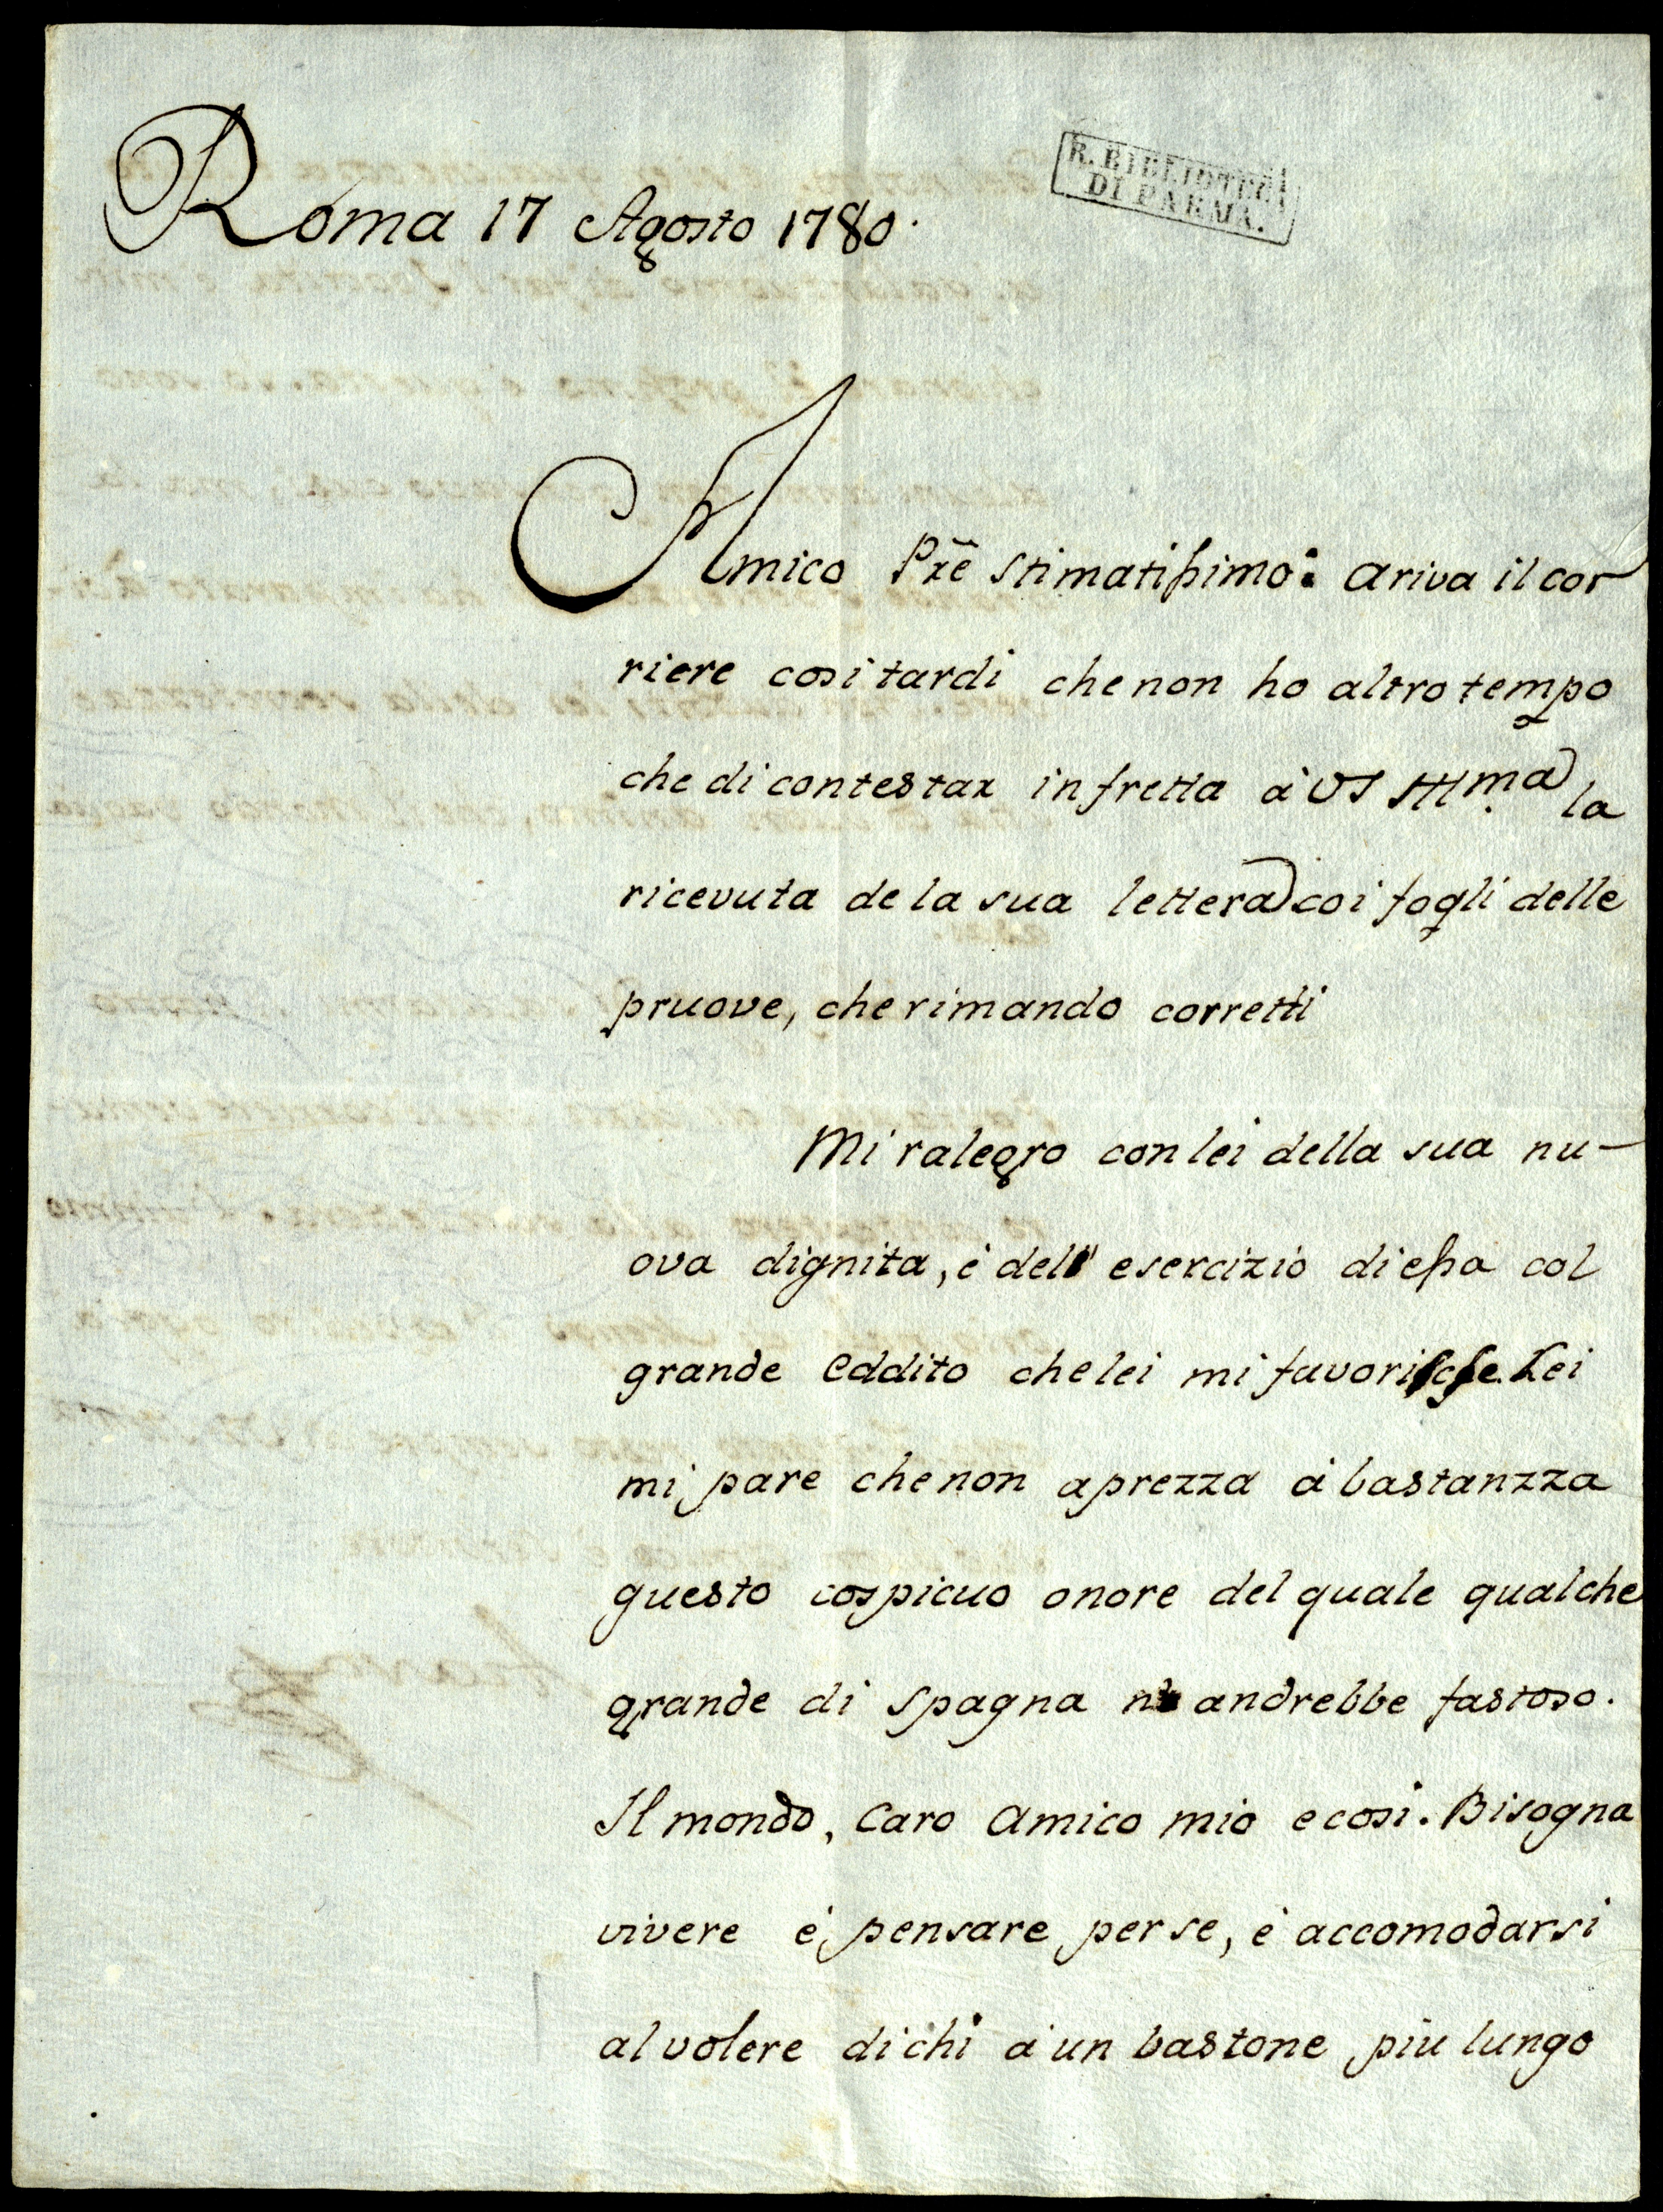 Roma 17 Agosto 1780.
R. BIBLIOTECA
DI PARMA.
Amico Prẽ stimatissimo: ariva il cor
riere cosi tardi che non ho altro tempo
che di contestar in fretta à VS Illma la
ricevuta de la sua lettera coi fogli delle
pruove, che rimando corretti
Mi ralegro con lei della sua nu-
ova dignita, è dell' esercizio di essa col
grande eddito che lei mi favorisce. Lei
mi pare che non aprezza à bastanzza
questo cospicuo onore del quale qualche
grande di Spagna andrebbe fastoso.
Il mondo, Caro Amico mio e cosi. Bisogna
vivere è pensare per se, è accomodarsi
al volere di chi à un bastone piu lungo